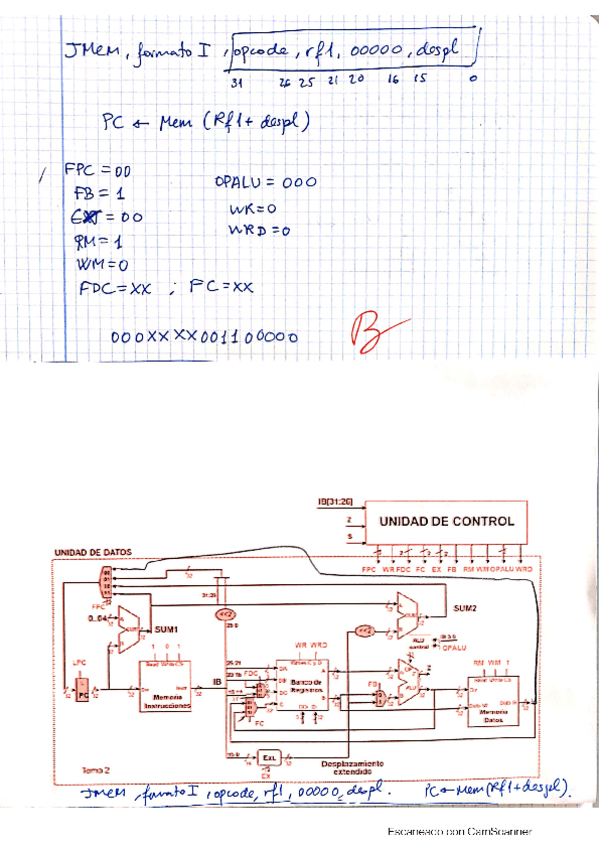 JMEM, formato I, opcode, rf1, 00000, despl
31 26 25 21 20 16 15 0
PC ← Mem (Rf1 + despl)
FPC = 00
OPALU = 000
FB = 1
WR = 0
EX = 00
WRD = 0
RM = 1
WM = 0
FDC = XX ; FC = XX
000XXXX001100000
B
IB[31:26]
Z
S
UNIDAD DE CONTROL
UNIDAD DE DATOS
FPC WR FDC FC EX FB RM WM OPALU WRD
FPC
0..04
SUM1
SUM2
<<2
<<2
ALU control
OPALU
LPC
PC
1 0 1
IB
WR WRD
FDC
Banco de Registros
FB
ALU
RM WM 1
Memoria Instrucciones
FC
Memoria Datos
Ext.
EX
Desplazamiento extendido
Tema 2
JMEM, formato I, opcode, rf1, 00000, despl. PC ← Mem (Rf1 + despl).
Escaneado con CamScanner